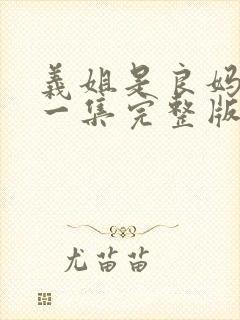 義姐是良妈
一集完整版
尤苗苗